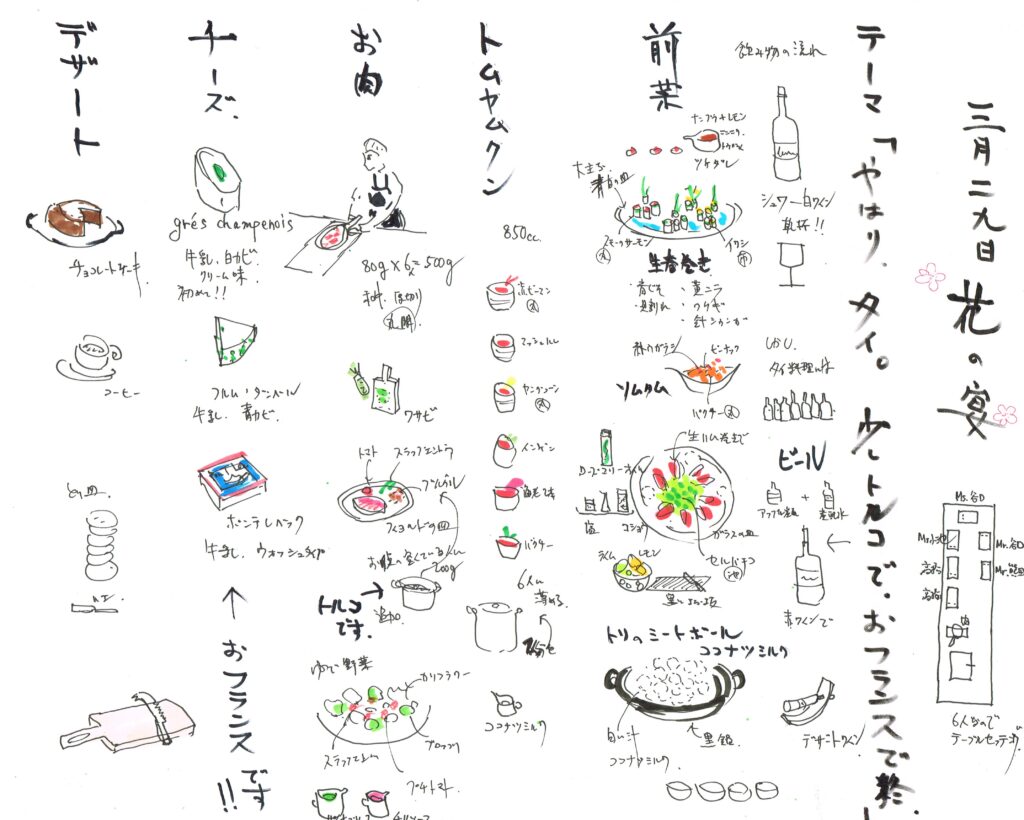 三月二九日 花の宴
テーマ「やはり、タイ。少しトルコで、おフランスで終。
飲み物の流れ
シャワー白ワイン
乾杯!!
しかし、
タイ料理には
ビール
赤ワインで
デザートワイン
Mr.谷口
6人なので
テーブルセッティング
前菜
ナンプラー+レモン
ニンニク
ツケダレ
大きな
青の皿
スモークサーモン
イワシ
生春巻き
・青じそ
・貝割れ
・黄ニラ
・ワケギ
・針ショウガ
ピーナック
ソムタム
パクチー
生ハム巻き
ローズマリーオイル
塩
コショウ
ガラスの皿
セルバチコ
ライム
レモン
トリのミートボール
ココナツミルク
白い汁
ココナツミルク
黒鍋
トムヤムクン
850cc.
赤ピーマン
マッシュルム
ヤングコーン
インゲン
パクチー
6人に
薄める
ココナツミルク
お肉
80g×6=500g
ワサビ
トマト
スナップエンドウ
ブルグル
200g
追加
トルコ
です。
ゆで野菜
カリフラワー
ブロッコリ
プチトマト
チーズ
grés champenois
牛乳、白カビ
クリーム味
初めて!!
フルム・ダンベール
牛乳、青カビ
ポンレベック
牛乳、ウォッシュタイプ
おフランス
です!!
デザート
チョコレートケーキ
コーヒー
とり皿